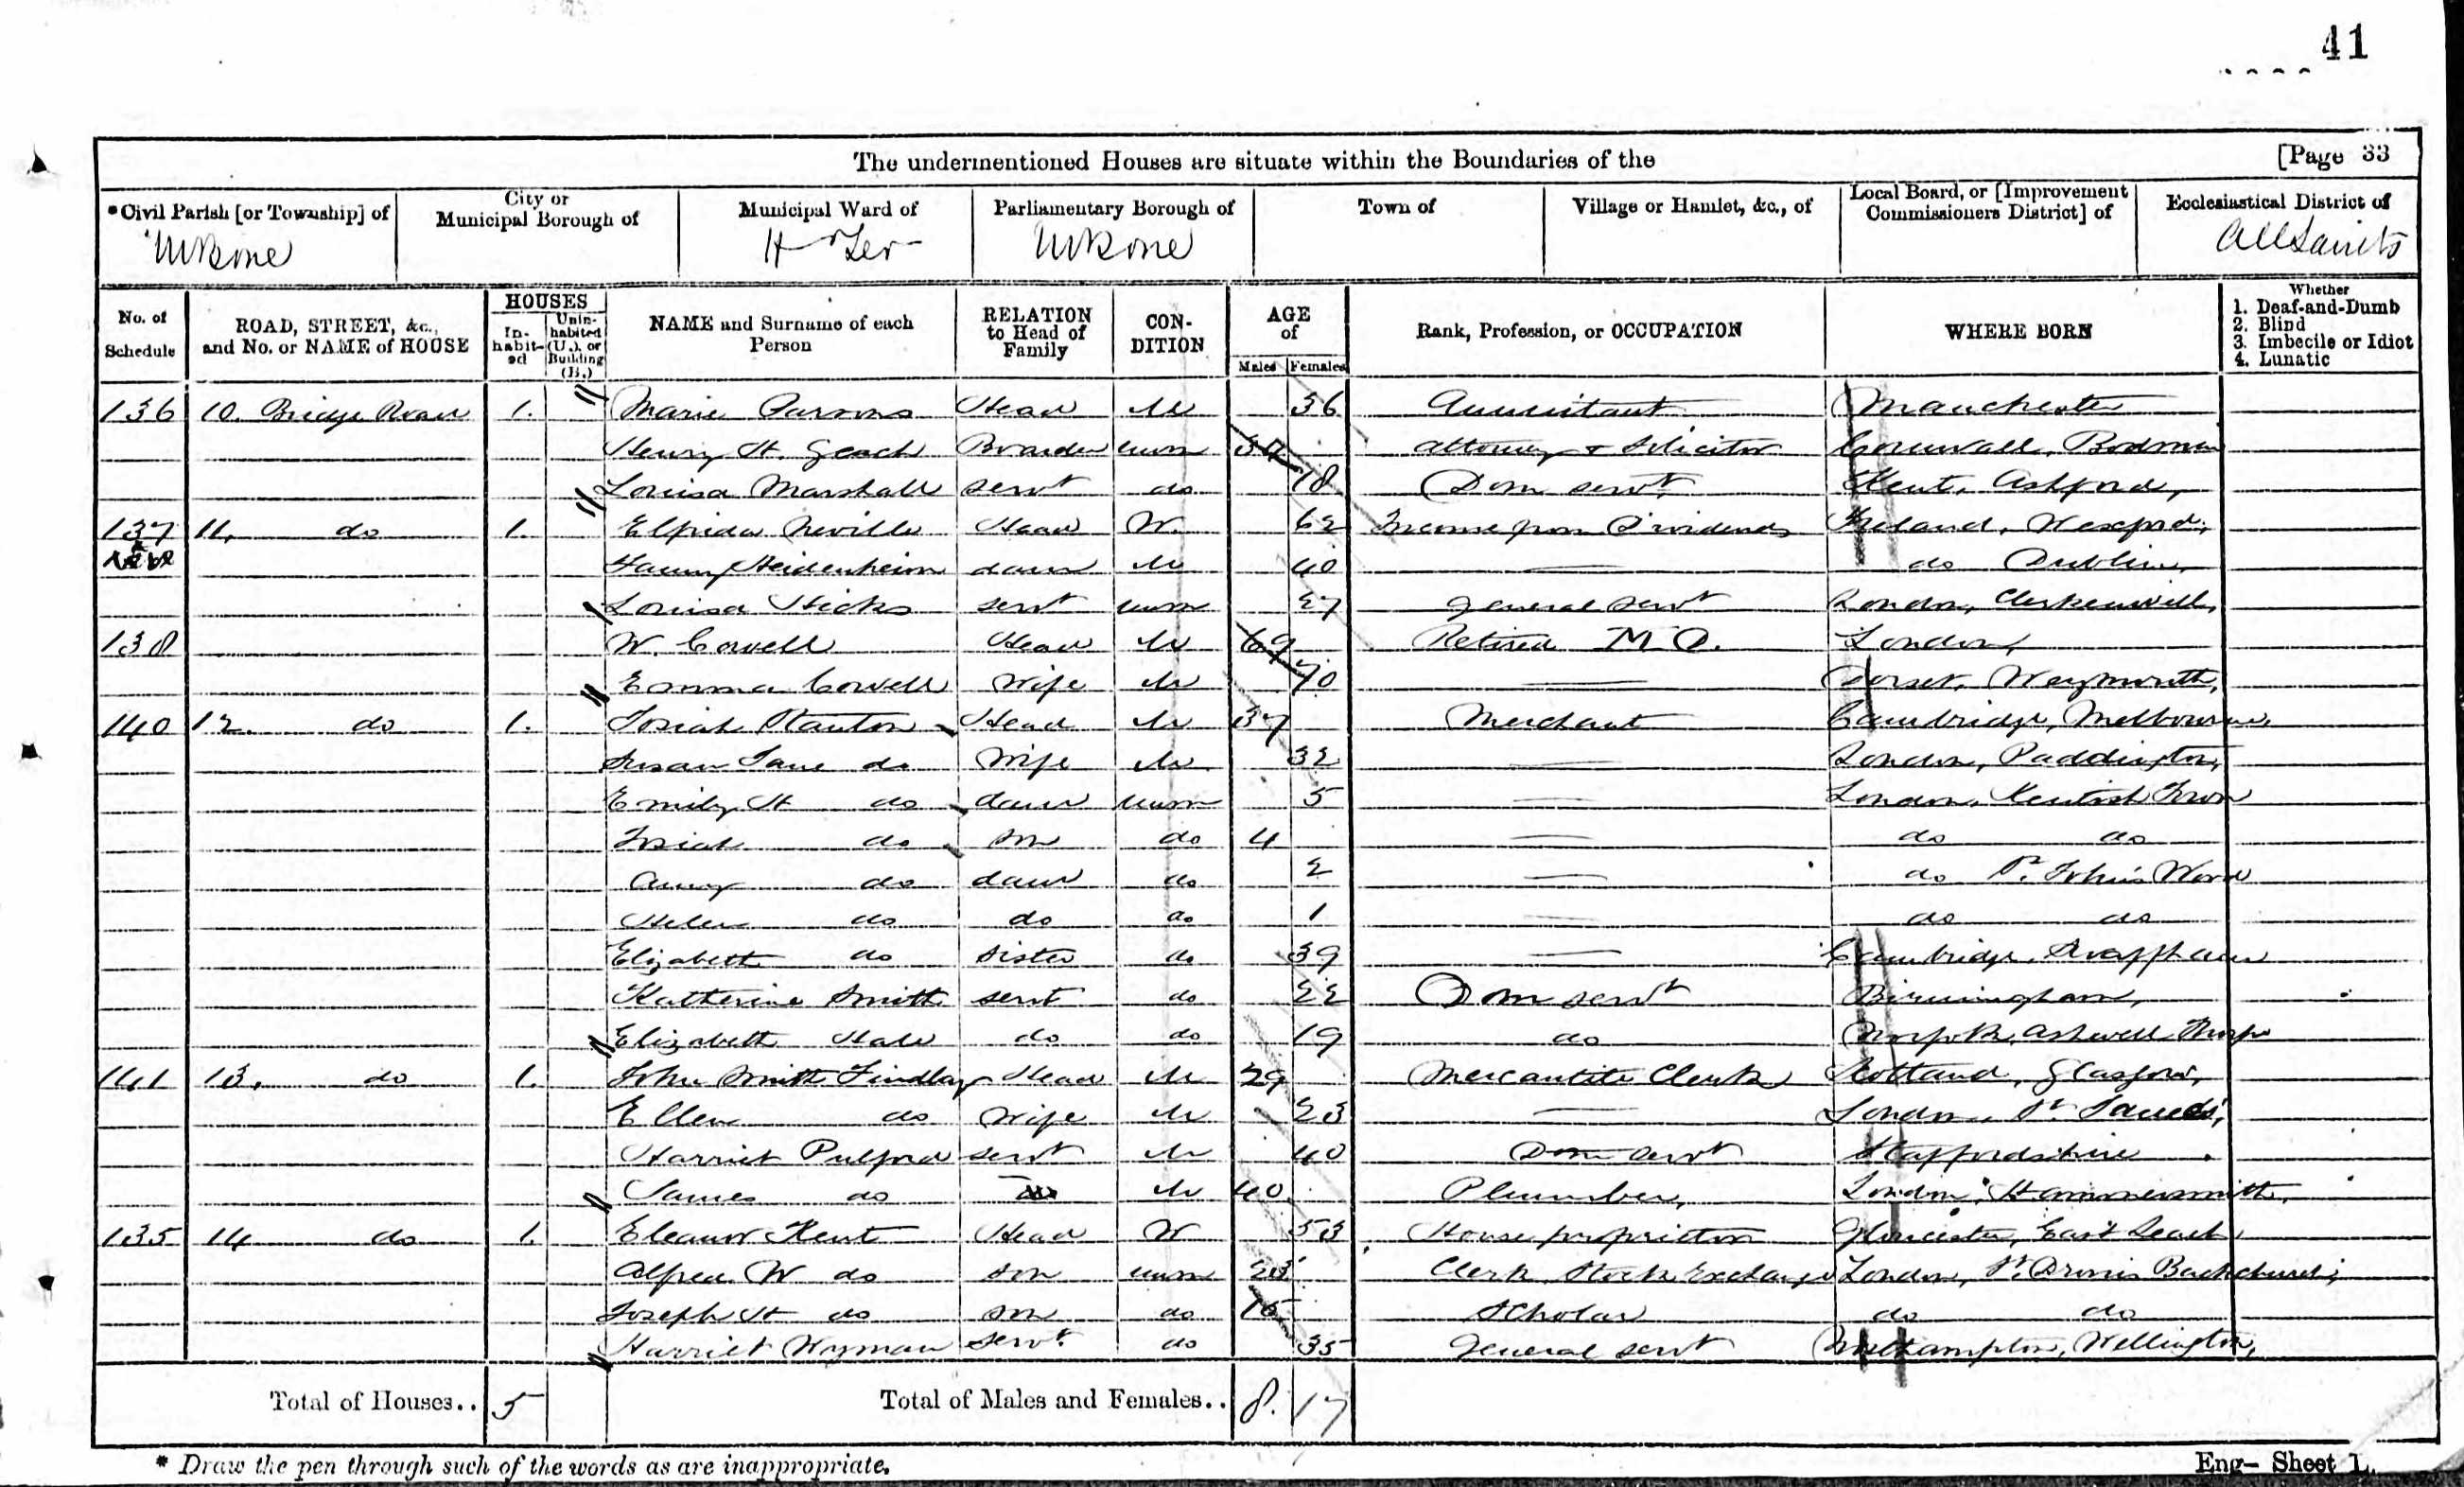 41
The undermentioned Houses are situate within the Boundaries of the [Page 33
*Civil Parish [or Township] of City or Municipal Borough of Municipal Ward of Parliamentary Borough of Town of Village or Hamlet, &c., of Local Board, or [Improvement Commissioners District] of Ecclesiastical District of
MBone MBone All Saints
No. of Schedule ROAD, STREET, &c., and No. or NAME of HOUSE HOUSES In-habit-ed Unin-habited (U.), or Building (B.) NAME and Surname of each Person RELATION to Head of Family CON-DITION AGE of Males Females Rank, Profession, or OCCUPATION WHERE BORN Whether 1. Deaf-and-Dumb 2. Blind 3. Imbecile or Idiot 4. Lunatic
136 10. Bridge Road 1. Marie Parsons Head M 36 Manchester
Henry H. Geach Boarder unm Attorney & Solicitor Cornwall, Bodmin
Louisa Marshall servt do 18 Dom servt. Kent, Ashford,
137 11. do 1. Elfrida Neville Head W. 62 Income from Dividends Ireland, Wexford,
Fanny Heidenheim daur M 40 — do Dublin,
Louisa Hicks servt unm 27 general servt London, Clerkenwell,
138 W. Cowell Head M 69 Retired M.D. London,
Emma Cowell Wife M 70 — Dorset, Weymouth,
140 12. do 1. Josiah Stanton Head M 37 Merchant Cambridge, Melbourne,
Susan Jane do Wife M 32 — London, Paddington,
Emily H do daur unm 5 — London, Kentish Town
Josiah do son do 4 — do do
Amy do daur do 2 — do St. John's Wood
Helen do do do 1 — do do
Elizabeth do Sister do 39 — Cambridge,
Katherine Smith servt do 22 Dom servt Birmingham,
Elizabeth Hall do do 19 do Norfolk, Ashwell Thorpe
141 13. do 1. John Smith Findlay Head M 29 Mercantile Clerk Scotland, Glasgow,
Ellen do Wife M 23 — London, St. James's,
Harriet Pulford servt M 40 Dom servt Staffordshire
James do M 40 Plumber, London, Hammersmith,
135 14 do 1. Eleanor Kent Head W 53 House proprietor Gloucester, East Leach
Alfred W do son unm Clerk, Stock Exchange London, St. Dionis Backchurch,
Joseph H do son do 16 Scholar do do
Harriet Wyman servt. do 35 general servt Northampton, Wellington,
Total of Houses.. 5 Total of Males and Females.. 8. 17
* Draw the pen through such of the words as are inappropriate. Eng— Sheet L.